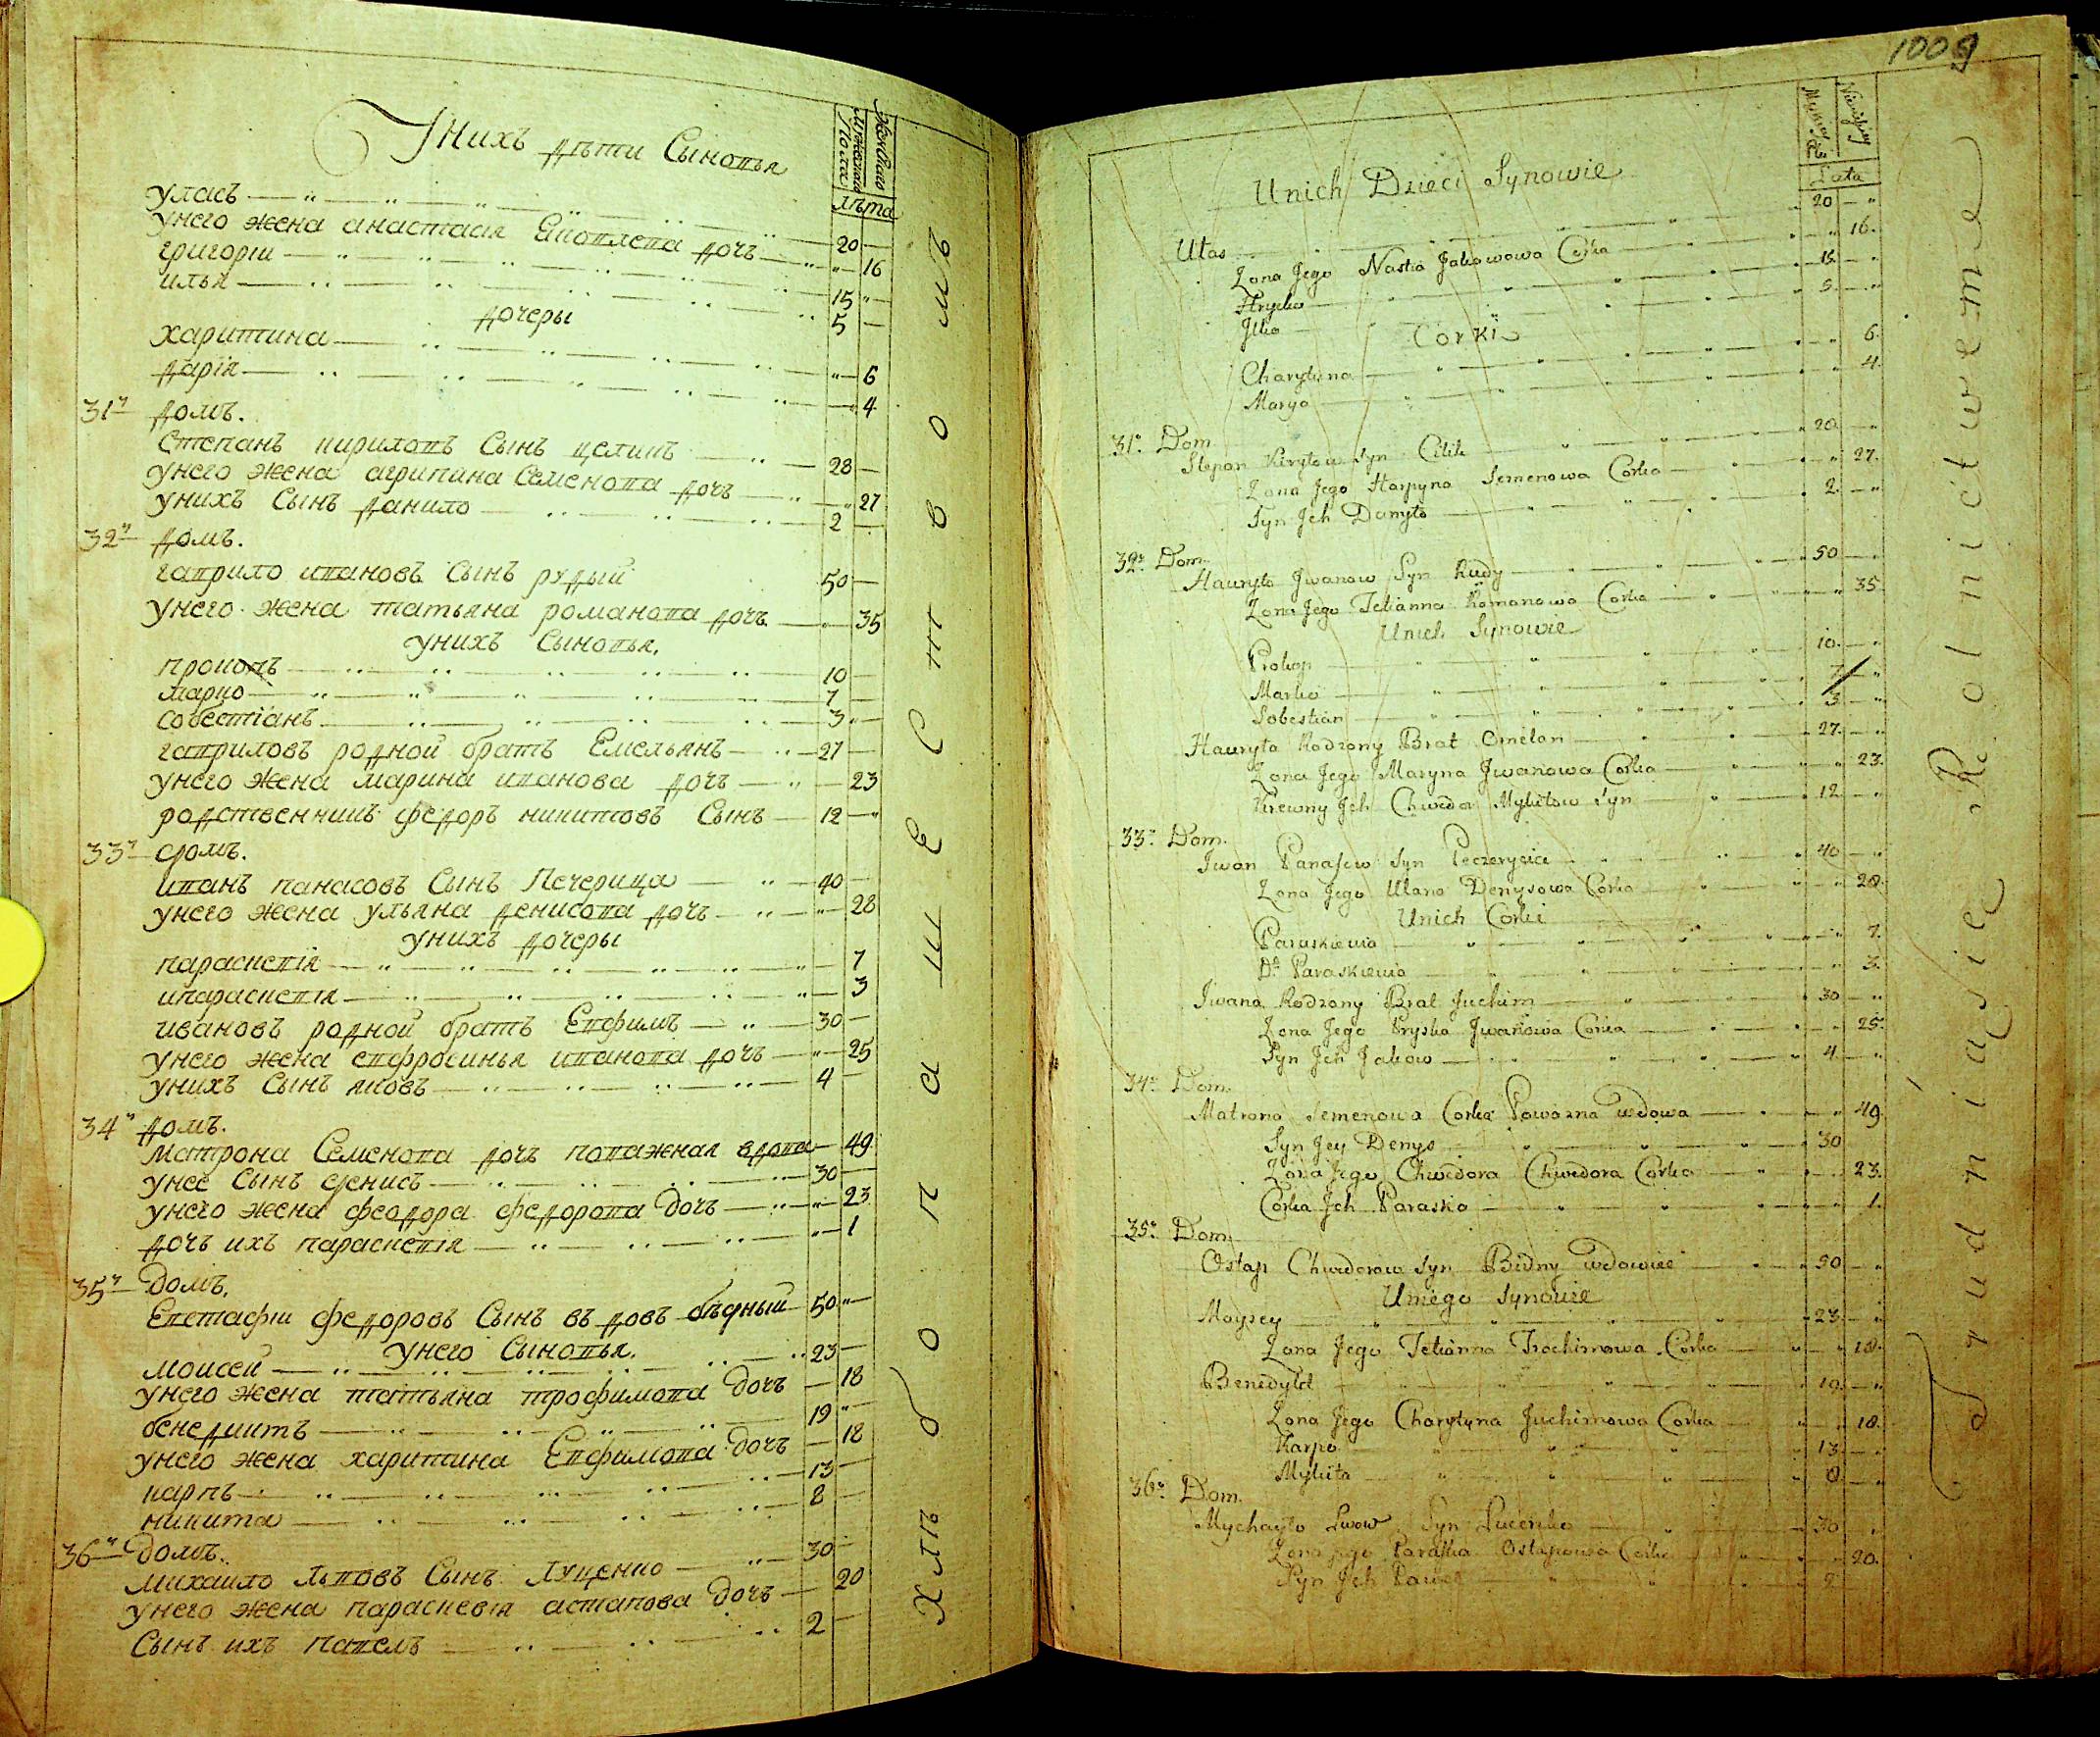 Унихъ дѣти Сыновья
Мужеска
Пола
Женскаго
лѣта
уласъ — 20 —
унего жена анастасія Яковлева дочъ — " — 16
григорїи — 15 "
илья — 5 —
дочеры
харитина — " — 6
дарїя — " — 4
31й домъ.
Степанъ кириловъ Сынъ целикъ — 28 —
унего жена агрипина Семенова дочъ — " 27
унихъ Сынъ данило — 2 —
32й домъ.
гаврило ивановъ Сынъ рудый 50 —
унего жена татьяна романова дочъ — " 35
унихъ Сыновья.
прокопъ — 10 —
марко — 7 —
совестїанъ — 3 " —
гавриловъ родной братъ Емельянъ — 27 —
унего жена марина иванова дочъ — 23
родственникъ федоръ никитовъ Сынъ — 12 — "
33й домъ.
иванъ панасовъ Сынъ Печерица — 40 —
унего жена ульяна денисова дочъ — " — 28
унихъ дочеры
параскевїя — 7
ипараскевїя — 3
ивановъ родной братъ Евфимъ — 30 —
унего жена евфросинья иванова дочъ — " — 25
унихъ Сынъ яковъ — 4 —
34й домъ.
матрона Семенова дочъ поважная вдова — 49
унее Сынъ денисъ — 30 —
унего жена феодора федорова дочъ — " — 23
дочъ ихъ параскевїя — " — 1
35й домъ.
Евстафїи федоровъ Сынъ вдовъ бѣдный — 50 " —
унего Сыновья.
моисей — 23 —
унего жена татьяна трофимова дочъ — 18
бенедиктъ — 19 " —
унего жена харитина Евфимова дочъ — 18
карпъ — 13 —
никита — 8 —
36й домъ.
михаило львовъ Сынъ Луценко — 30 —
унего жена параскевїя астапова дочъ — 20
Сынъ ихъ павелъ — 2 —
Хлѣбопашествомъ
1009
Unich Dzieci Synowie
Lata
Ułas — 20 — "
Zona Jego Nastia Jakowowa Corka — " 16.
Hryćko — 15 — "
Jlko — 5 — "
Corki
Charytyna — " 6.
Marya — " 4.
31° Dom
Stepan Kiryłow Syn Cilik — 28 —
Zona Jego Harpyna Semenowa Corka — " 27.
Syn Jch Danyło — 2. — "
32° Dom.
Hauryło Jwanow Syn Rudy — 50 — "
Zona Jego Tetianna Romanowa Corka — " 35
Unich Synowie
Prokop — 10. — "
Marko — 7 — "
Sobestian — 3 — "
Hauryła Rodzony Brat Omelan — 27. — "
Zona Jego Maryna Jwanowa Corka — " 23.
Krewny Jch Chwedor Mykitow Syn — 12 — "
33° Dom.
Jwan Panasow Syn Peczeryca — 40 — "
Zona Jego Ulana Denysowa Corka — " 28.
Unich Corki
Paraskiewia — " 7.
Dа Paraskiewia — " 3.
Jwana Rodzony Brat Juchim — 30 — "
Zona Jego Pryśka Jwanowa Corka — " 25.
Syn Jch Jakow — 4 — "
34° Dom.
Matrona Semenowa Corka Powazna Wdowa — " 49
Syn Jey Denys — 30
Zona Jego Chwedora Chwedora Corka — " 23.
Corka Jch Paraska — " 1.
35° Dom.
Ostap Chwedorow Syn Bidny Wdowiec — 50 — "
Uniego Synowie
Moysey — 23 — "
Zona Jego Tetianna Trochimowa Corka — " 18.
Benedykt — 19. — "
Zona Jego Charytyna Juchimowa Corka — " 18.
Karpo — 13 — "
Mykita — 8 — "
36° Dom.
Mychayło Lwow Syn Łucenko — 30 "
Zona Jego Paraska Ostapowa Corka — " 20.
Syn Jch Paweł — 2 — "
Trudniąsię Rolnictwem